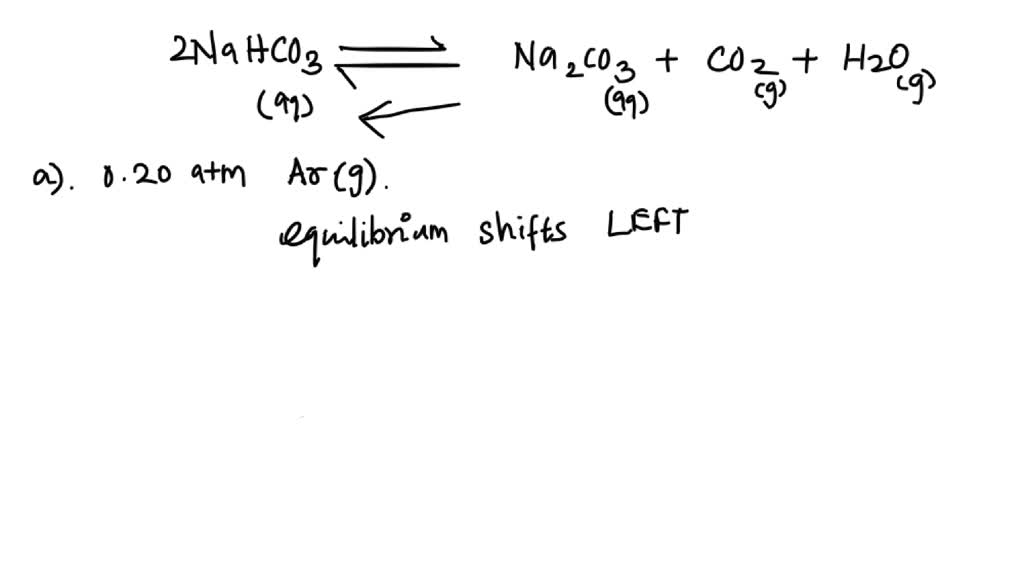 2NaHCO₃ ⇌ Na₂CO₃ + CO₂ + H₂O
(aq) ← (aq) (g) (g)
a). 0.20 atm Ar(g).
equilibrium shifts LEFT